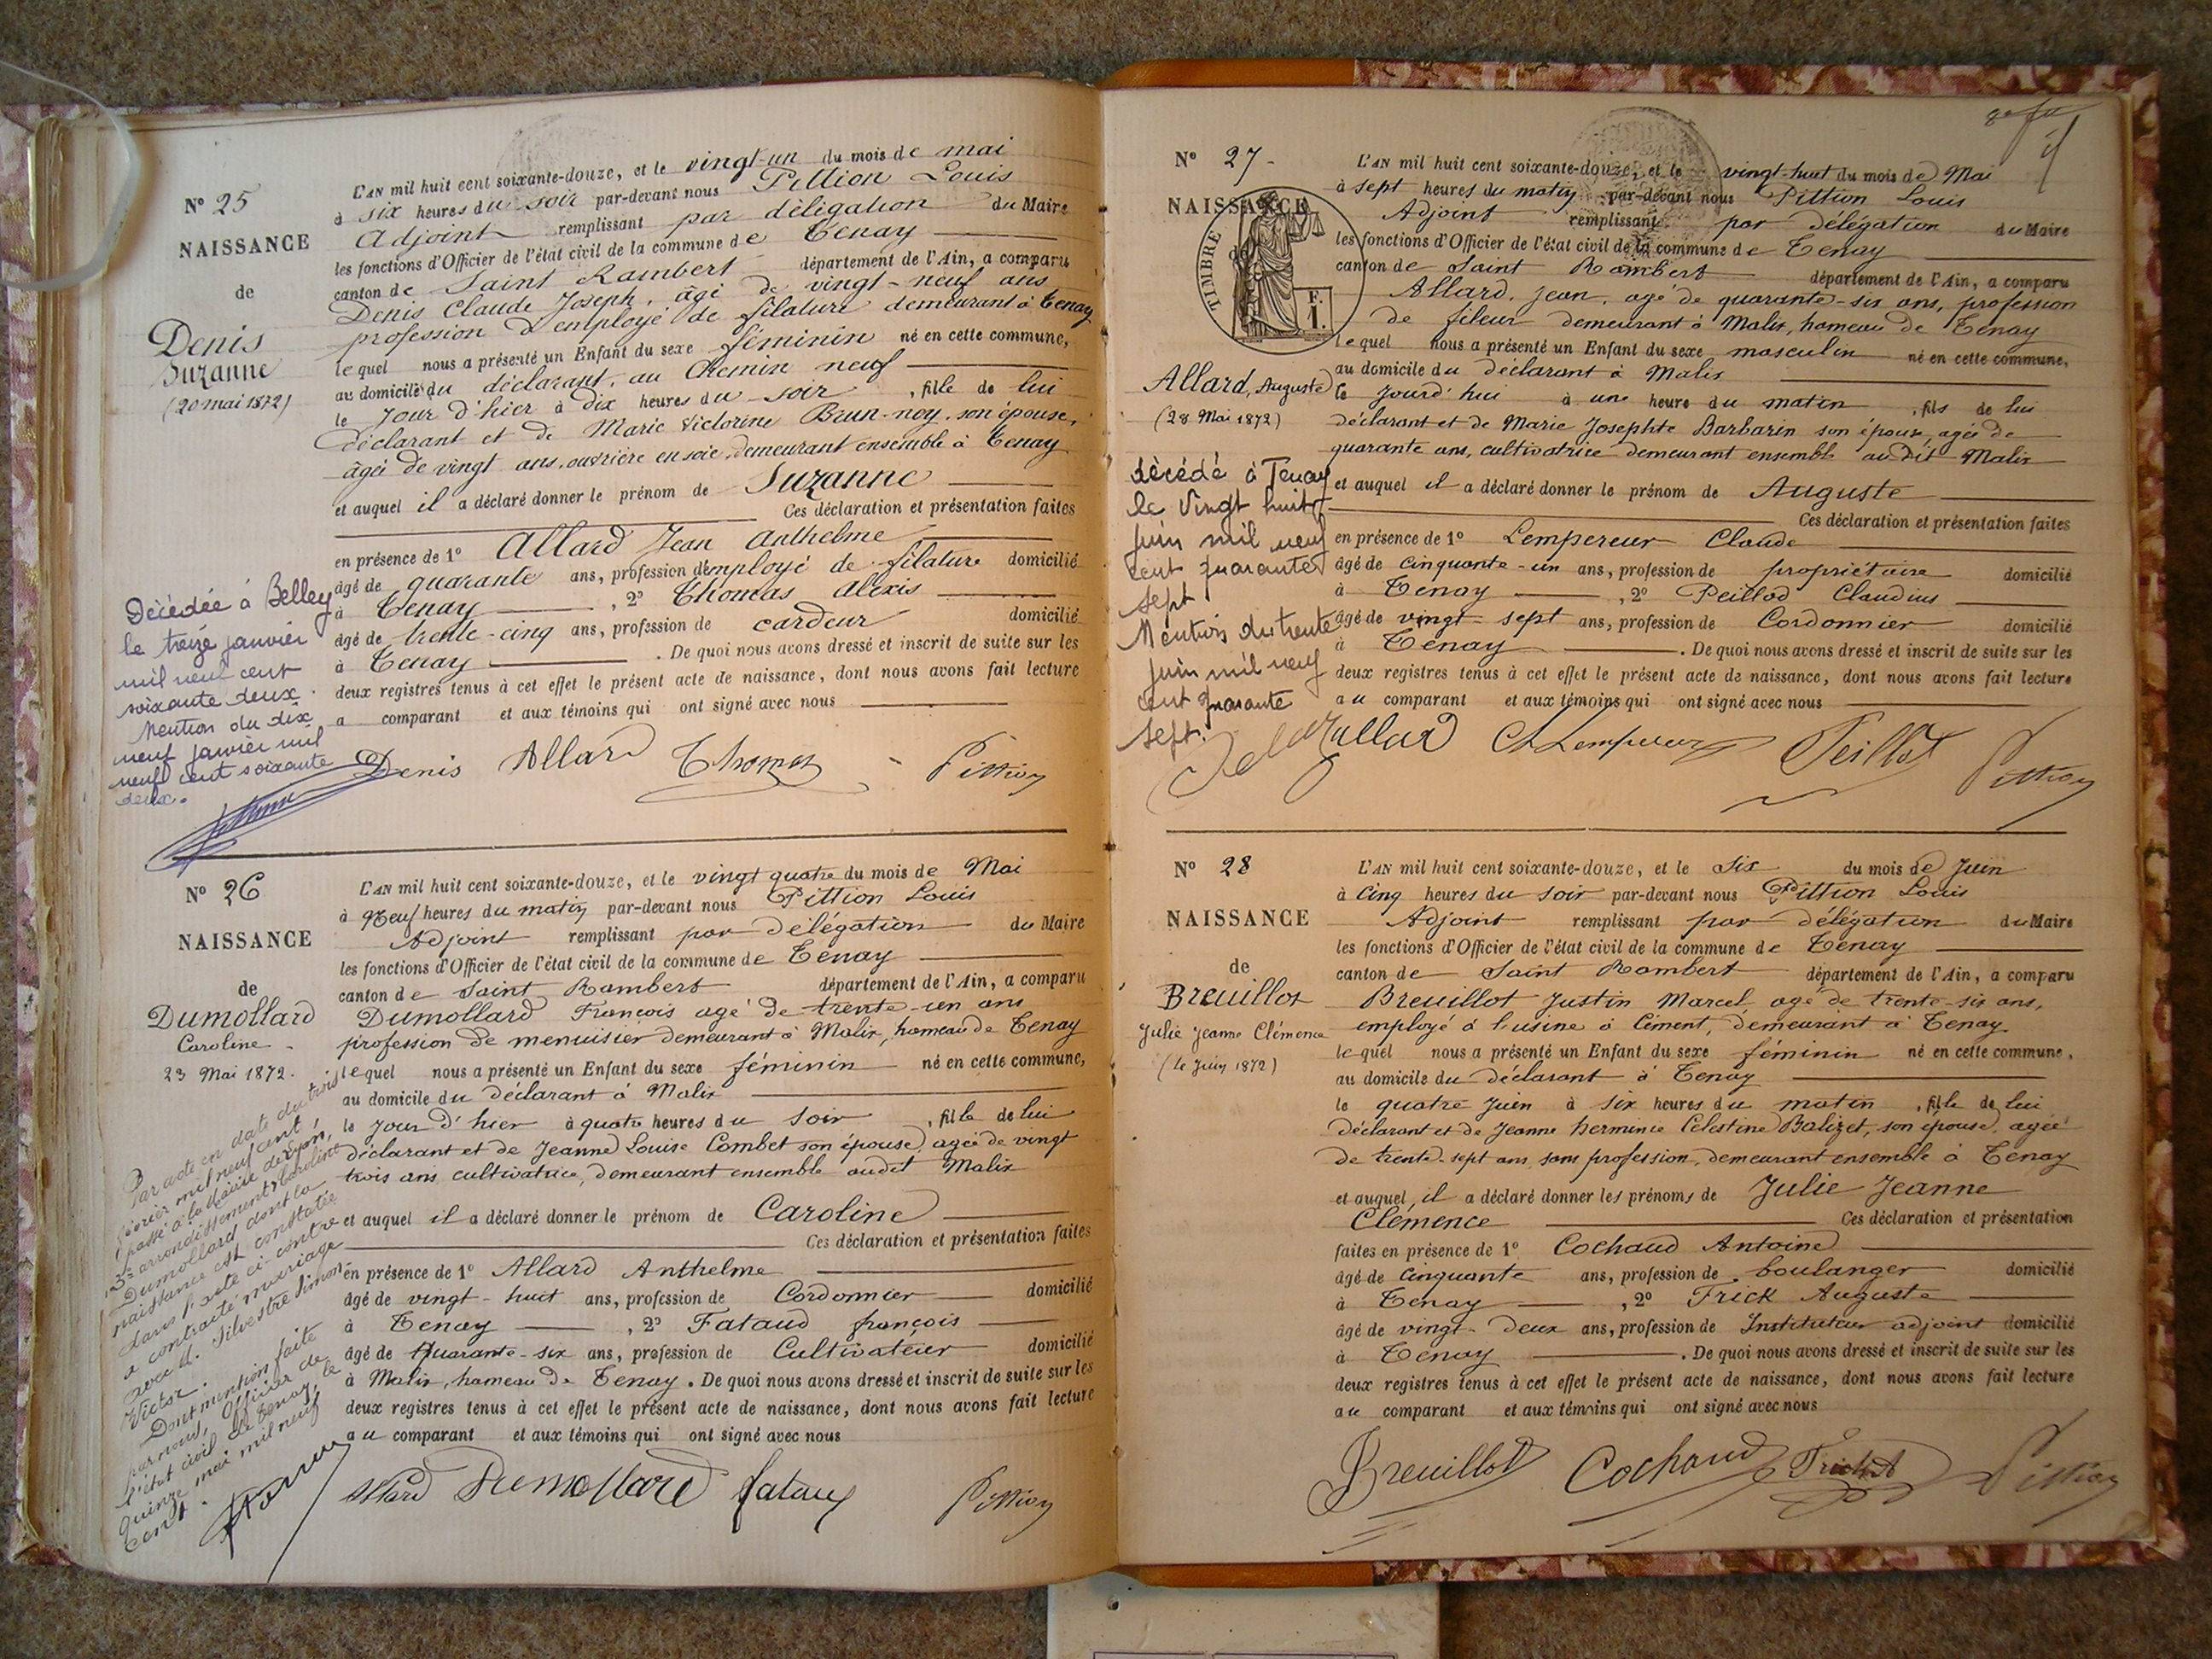 N° 25
NAISSANCE
de
Denis
Suzanne
(20 mai 1872)
L'AN mil huit cent soixante-douze, et le vingt-un du mois de mai
à six heures du soir par-devant nous Pittion Louis
Adjoint remplissant par délégation du Maire
les fonctions d'Officier de l'état civil de la commune de Tenay
canton de Saint Rambert département de l'Ain, a comparu
Denis Claude Joseph, âgé de vingt-neuf ans
profession d'employé de filature demeurant à Tenay
lequel nous a présenté un Enfant du sexe féminin né en cette commune,
au domicile du déclarant, au Chemin neuf
le jour d'hier à dix heures du soir, fille de lui
déclarant et de Marie Victorine Brun-noy, son épouse,
âgée de vingt ans, ouvrière en soie, demeurant ensemble à Tenay
et auquel il a déclaré donner le prénom de Suzanne
Ces déclaration et présentation faites
en présence de 1° Allard Jean Anthelme
âgé de quarante ans, profession d'employé de filature domicilié
à Tenay, 2° Thomas Alexis
âgé de trente-cinq ans, profession de cardeur domicilié
à Tenay. De quoi nous avons dressé et inscrit de suite sur les
deux registres tenus à cet effet le présent acte de naissance, dont nous avons fait lecture
a comparant et aux témoins qui ont signé avec nous
Denis Allard Thomas Pittion
Décédée à Belley
le treize janvier
mil neuf cent
soixante deux.
Mention du dix
neuf janvier mil
neuf cent soixante
deux.
N° 26
NAISSANCE
de
Dumollard
Caroline
23 Mai 1872.
L'AN mil huit cent soixante-douze, et le vingt quatre du mois de Mai
à Neuf heures du matin par-devant nous Pittion Louis
Adjoint remplissant par délégation du Maire
les fonctions d'Officier de l'état civil de la commune de Tenay
canton de Saint Rambert département de l'Ain, a comparu
Dumollard François agé de trente-un ans
profession de menuisier demeurant à Malix, hameau de Tenay
lequel nous a présenté un Enfant du sexe féminin né en cette commune,
au domicile du déclarant à Malix
le jour d'hier à quatre heures du soir, fille de lui
déclarant et de Jeanne Louise Combet son épouse, agée de vingt
trois ans cultivatrice, demeurant ensemble audit Malix
et auquel il a déclaré donner le prénom de Caroline
Ces déclaration et présentation faites
en présence de 1° Allard Anthelme
âgé de vingt-huit ans, profession de Cordonnier domicilié
à Tenay, 2° Fataud françois
âgé de Quarante-six ans, profession de Cultivateur domicilié
à Malix, hameau de Tenay. De quoi nous avons dressé et inscrit de suite sur les
deux registres tenus à cet effet le présent acte de naissance, dont nous avons fait lecture
au comparant et aux témoins qui ont signé avec nous
Allard Dumollard fataud Pittion
Par acte en date du trois
février mil neuf cent,
passé à la Mairie de Lyon,
3e arrondissement, Caroline
Dumollard dont la
naissance est constatée
dans l'acte ci-contre
a contracté mariage
avec M. Silvestre Simon
Victor.
Dont mention faite
par nous, Officier de
l'état civil de Tenay, le
quinze mai mil neuf
cent.
N° 27
NAISSANCE
de
TIMBRE
F.
1.
Allard, Auguste
(28 Mai 1872)
L'AN mil huit cent soixante-douze, et le vingt-huit du mois de Mai
à sept heures du matin par-devant nous Pittion Louis
Adjoint remplissant par délégation du Maire
les fonctions d'Officier de l'état civil de la commune de Tenay
canton de Saint Rambert département de l'Ain, a comparu
Allard, jean, agé de quarante-six ans, profession
de fileur demeurant à Malix, hameau de Tenay
lequel nous a présenté un Enfant du sexe masculin né en cette commune,
au domicile du déclarant à Malix
le jourd'hui à une heure du matin, fils de lui
déclarant et de Marie Josephte Barbarin son épouse, agée de
quarante ans, cultivatrice demeurant ensemble au dit Malix
et auquel il a déclaré donner le prénom de Auguste
Ces déclaration et présentation faites
en présence de 1° Lempereur Claude
âgé de Cinquante-un ans, profession de propriétaire domicilié
à Tenay, 2° Peillod Claudius
âgé de vingt-sept ans, profession de Cordonnier domicilié
à Tenay. De quoi nous avons dressé et inscrit de suite sur les
deux registres tenus à cet effet le présent acte de naissance, dont nous avons fait lecture
au comparant et aux témoins qui ont signé avec nous
Peillod Pittion
décédé à Tenay
le Vingt huit
juin mil neuf
cent quarante
sept
Mention du trente
juin mil neuf
cent quarante
sept.
N° 28
NAISSANCE
de
Breuillot
Julie Jeanne Clémence
(4 Juin 1872)
L'AN mil huit cent soixante-douze, et le Six du mois de Juin
à Cinq heures du soir par-devant nous Pittion Louis
Adjoint remplissant par délégation du Maire
les fonctions d'Officier de l'état civil de la commune de Tenay
canton de Saint Rambert département de l'Ain, a comparu
Breuillot Justin Marcel agé de trente-six ans,
employé à l'usine à Ciment, demeurant à Tenay
lequel nous a présenté un Enfant du sexe féminin né en cette commune,
au domicile du déclarant à Tenay
le quatre Juin à six heures du matin, fille de lui
déclarant et de Jeanne Hermince Célestine Balizet, son épouse, agée
de trente-sept ans, sans profession, demeurant ensemble à Tenay
et auquel il a déclaré donner les prénoms de Julie Jeanne
Clémence Ces déclaration et présentation
faites en présence de 1° Cochaud Antoine
âgé de Cinquante ans, profession de boulanger domicilié
à Tenay, 2° Frick Auguste
âgé de vingt-deux ans, profession de Instituteur adjoint domicilié
à Tenay. De quoi nous avons dressé et inscrit de suite sur les
deux registres tenus à cet effet le présent acte de naissance, dont nous avons fait lecture
au comparant et aux témoins qui ont signé avec nous
Breuillot Cochaud Pittion